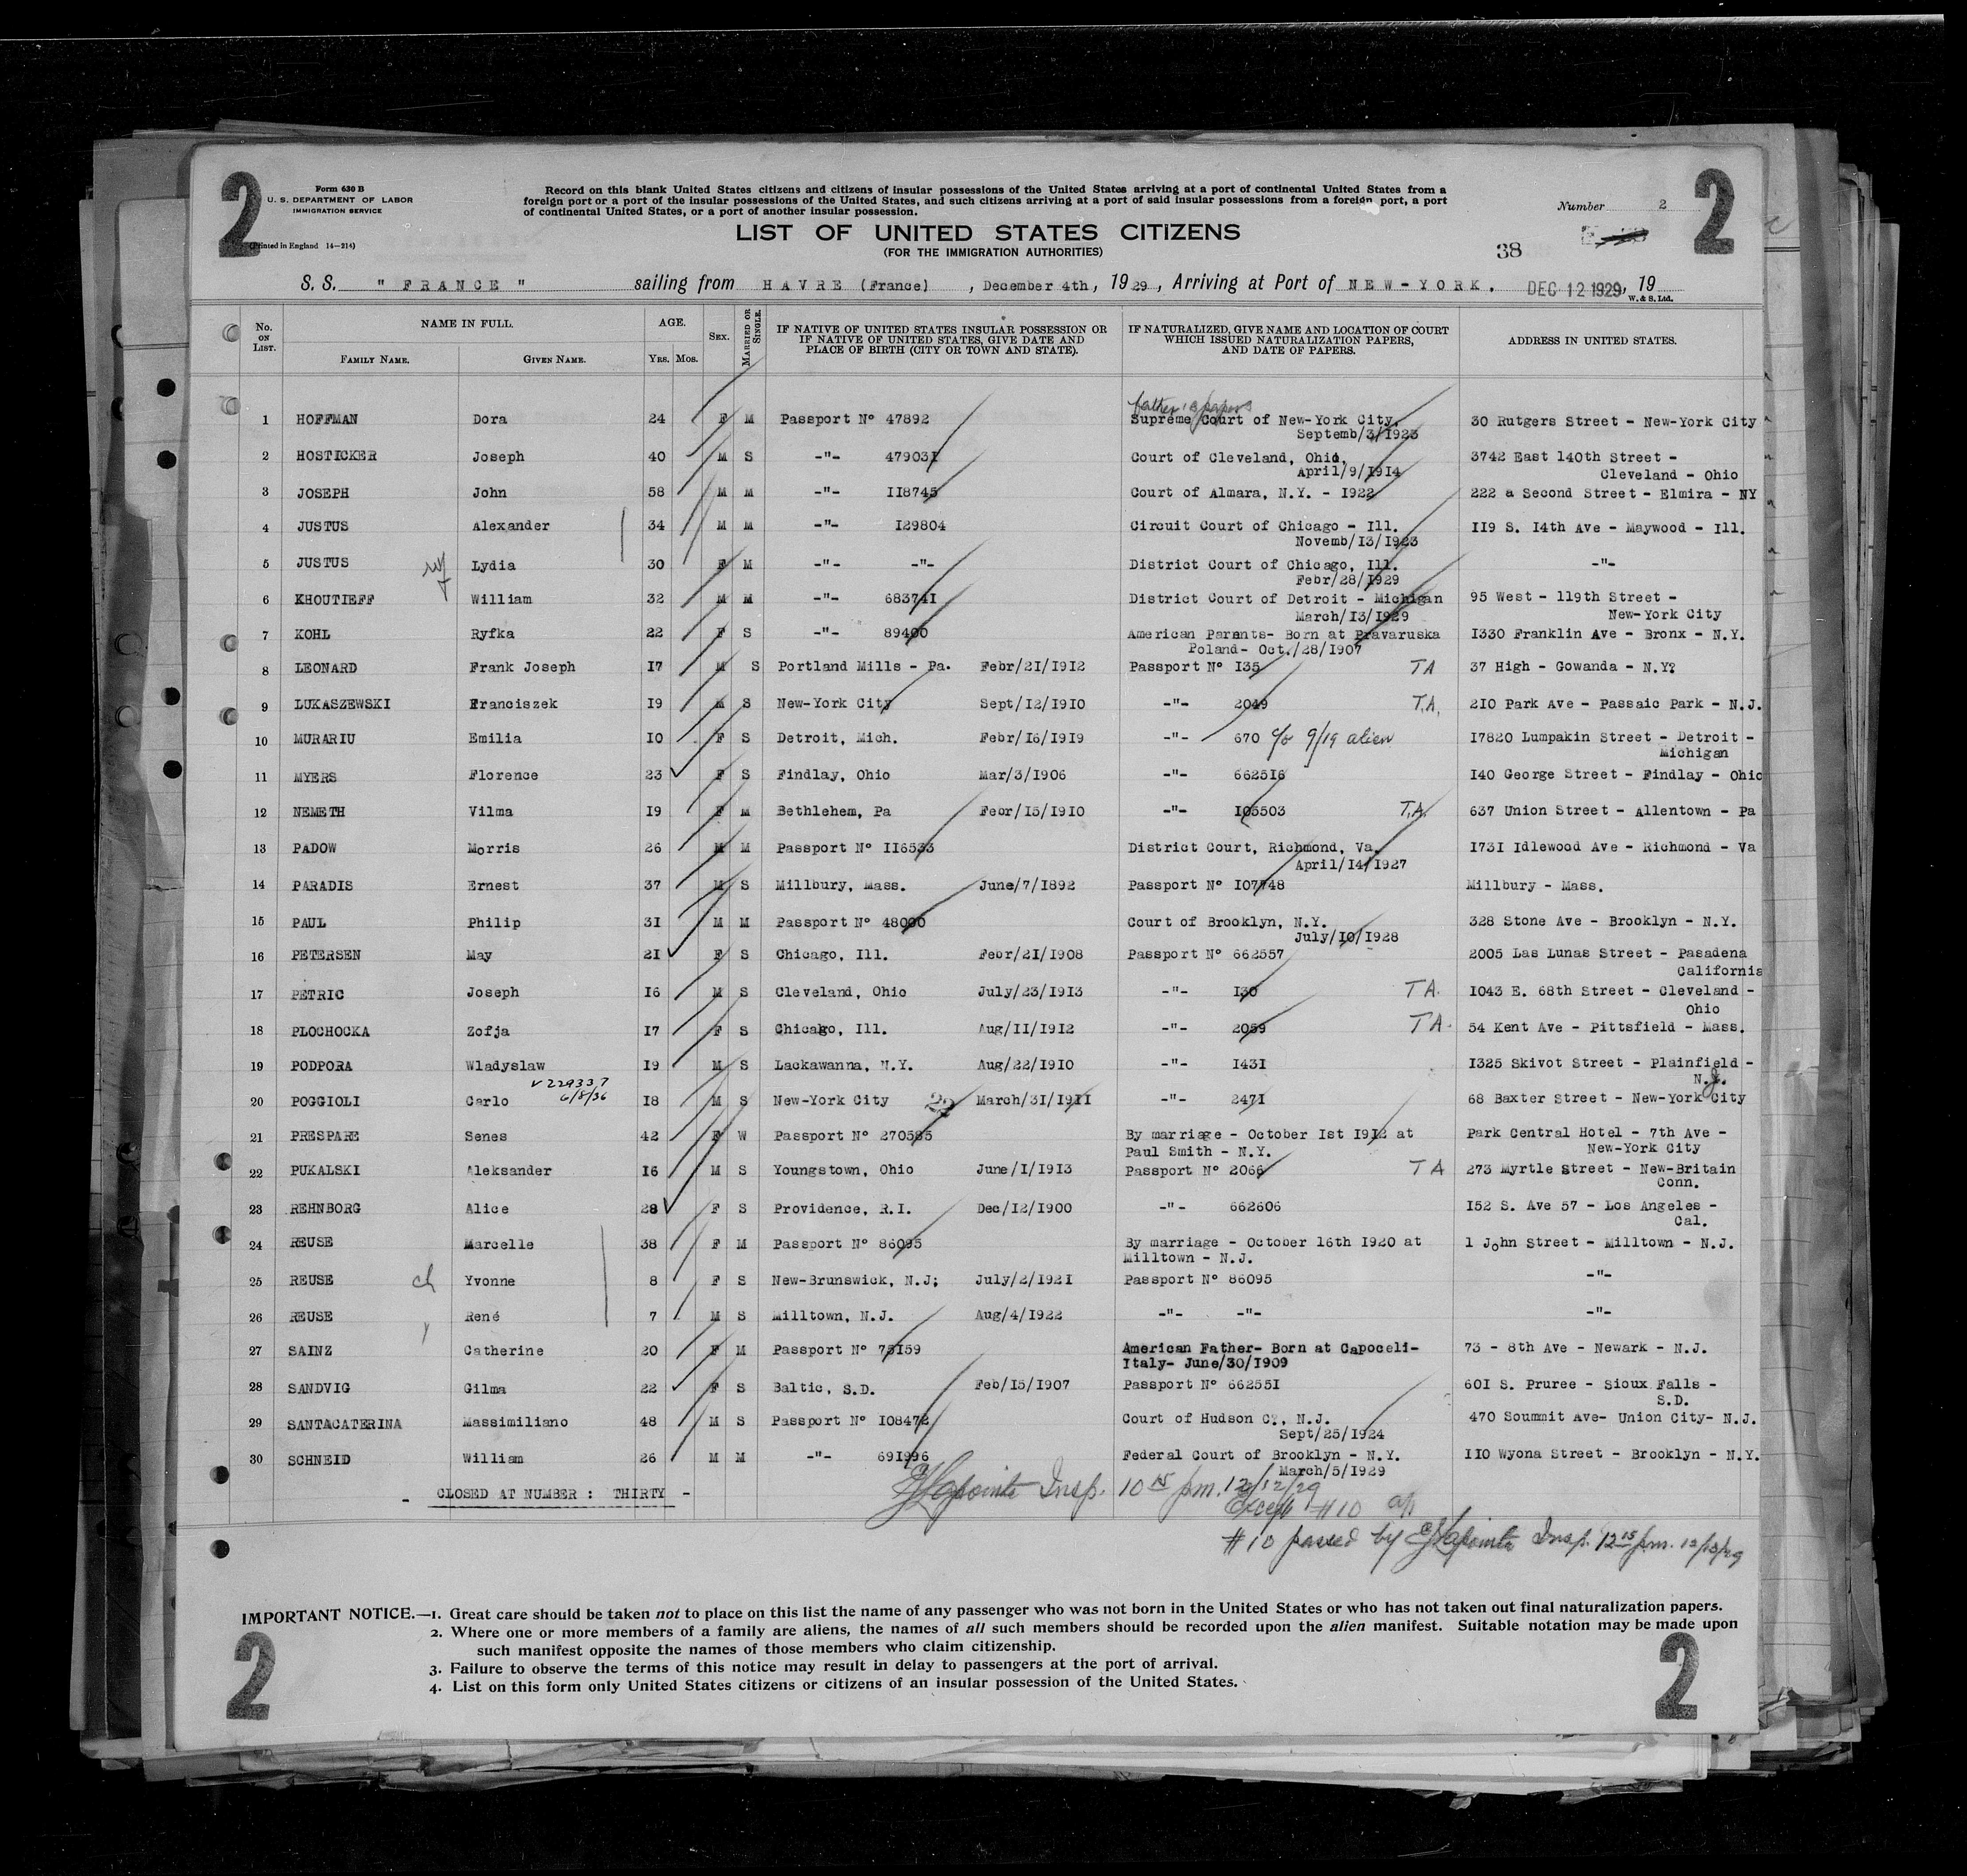 2
2
Form 630 B
U. S. DEPARTMENT OF LABOR
IMMIGRATION SERVICE
(Printed in England 14—214)
Record on this blank United States citizens and citizens of insular possessions of the United States arriving at a port of continental United States from a
foreign port or a port of the insular possessions of the United States, and such citizens arriving at a port of said insular possessions from a foreign port, a port
of continental United States, or a port of another insular possession.
Number 2
LIST OF UNITED STATES CITIZENS
(FOR THE IMMIGRATION AUTHORITIES)
38
S. S. " FRANCE " sailing from HAVRE (France) , December 4th, 1929, Arriving at Port of NEW-YORK. DEC 12 1929, 19
W. & S. Ltd.
No. ON LIST. NAME IN FULL. FAMILY NAME. GIVEN NAME. AGE. YRS. MOS. SEX. MARRIED OR SINGLE. IF NATIVE OF UNITED STATES INSULAR POSSESSION OR IF NATIVE OF UNITED STATES, GIVE DATE AND PLACE OF BIRTH (CITY OR TOWN AND STATE). IF NATURALIZED, GIVE NAME AND LOCATION OF COURT WHICH ISSUED NATURALIZATION PAPERS, AND DATE OF PAPERS. ADDRESS IN UNITED STATES.
father's papers
1 HOFFMAN Dora 24 F M Passport N° 47892 Supreme Court of New-York City. 30 Rutgers Street - New-York City
Septemb/3/1923
2 HOSTICKER Joseph 40 M S -"- 479031 Court of Cleveland, Ohio. 3742 East 140th Street -
April/9/1914 Cleveland - Ohio
3 JOSEPH John 58 M M -"- 118745 Court of Almara, N.Y. - 1922 222 a Second Street - Elmira - NY
4 JUSTUS Alexander 34 M M -"- 129804 Circuit Court of Chicago - Ill. 119 S. 14th Ave - Maywood - Ill.
Novemb/13/1923
5 JUSTUS wf Lydia 30 F M -"- -"- District Court of Chicago, Ill. -"-
Febr/28/1929
6 KHOUTIEFF William 32 M M -"- 683741 District Court of Detroit - Michigan 95 West - 119th Street -
March/13/1929 New-York City
7 KOHL Ryfka 22 F S -"- 89400 American Parents- Born at Pravaruska 1330 Franklin Ave - Bronx - N.Y.
Poland- Oct./28/1907
8 LEONARD Frank Joseph 17 M S Portland Mills - Pa. Febr/21/1912 Passport N° 135 TA 37 High - Gowanda - N.Y?
9 LUKASZEWSKI Franciszek 19 M S New-York City Sept/12/1910 -"- 2049 T.A. 210 Park Ave - Passaic Park - N.J.
10 MURARIU Emilia 10 F S Detroit, Mich. Febr/16/1919 -"- 670 c/o 9/19 alien 17820 Lumpakin Street - Detroit -
Michigan
11 MYERS Florence 23 F S Findlay, Ohio Mar/3/1906 -"- 662516 140 George Street - Findlay - Ohio
12 NEMETH Vilma 19 F M Bethlehem, Pa Febr/15/1910 -"- 105503 T.A. 637 Union Street - Allentown - Pa
13 PADOW Morris 26 M M Passport N° 116533 District Court, Richmond, Va. 1731 Idlewood Ave - Richmond - Va
April/14/1927
14 PARADIS Ernest 37 M S Millbury, Mass. June/7/1892 Passport N° 107748 Millbury - Mass.
15 PAUL Philip 31 M M Passport N° 48000 Court of Brooklyn, N.Y. 328 Stone Ave - Brooklyn - N.Y.
July/10/1928
16 PETERSEN May 21 F S Chicago, Ill. Febr/21/1908 Passport N° 662557 2005 Las Lunas Street - Pasadena
California
17 PETRIC Joseph 16 M S Cleveland, Ohio July/23/1913 -"- 130 TA. 1043 E. 68th Street - Cleveland -
Ohio
18 PLOCHOCKA Zofja 17 F S Chicago, Ill. Aug/11/1912 -"- 2059 TA. 54 Kent Ave - Pittsfield - Mass.
19 PODPORA Wladyslaw 19 M S Lackawanna, N.Y. Aug/22/1910 -"- 1431 1325 Skivot Street - Plainfield -
N.J.
v 229337
6/8/36
20 POGGIOLI Carlo 18 M S New-York City 22 March/31/1911 -"- 2471 68 Baxter Street - New-York City
21 PRESPARE Senes 42 F W Passport N° 270585 By marriage - October 1st 1912 at Park Central Hotel - 7th Ave -
Paul Smith - N.Y. New-York City
22 PUKALSKI Aleksander 16 M S Youngstown, Ohio June/1/1913 Passport N° 2066 TA 273 Myrtle Street - New-Britain
Conn.
23 REHNBORG Alice 28 F S Providence, R.I. Dec/12/1900 -"- 662606 152 S. Ave 57 - Los Angeles -
Cal.
24 REUSE Marcelle 38 F M Passport N° 86095 By marriage - October 16th 1920 at 1 John Street - Milltown - N.J.
Milltown - N.J.
25 REUSE ch Yvonne 8 F S New-Brunswick, N.J; July/2/1921 Passport N° 86095 -"-
26 REUSE René 7 M S Milltown, N.J. Aug/4/1922 -"- -"- -"-
27 SAINZ Catherine 20 F M Passport N° 75159 American Father- Born at Capoceli- 73 - 8th Ave - Newark - N.J.
Italy- June/30/1909
28 SANDVIG Gilma 22 F S Baltic, S.D. Feb/15/1907 Passport N° 662551 601 S. Pruree - Sioux Falls -
S.D.
29 SANTACATERINA Massimiliano 48 M S Passport N° 108472 Court of Hudson C?, N.J. 470 Soummit Ave- Union City- N.J.
Sept/25/1924
30 SCHNEID William 26 M M -"- 691996 Federal Court of Brooklyn - N.Y. 110 Wyona Street - Brooklyn - N.Y.
March/5/1929
- CLOSED AT NUMBER : THIRTY -
EJLapointe Insp. 10 15 pm. 12/12/29
Except #10
#10 passed by EJLapointe Insp. 12 15 pm. 12/13/29
IMPORTANT NOTICE.—1. Great care should be taken not to place on this list the name of any passenger who was not born in the United States or who has not taken out final naturalization papers.
2. Where one or more members of a family are aliens, the names of all such members should be recorded upon the alien manifest. Suitable notation may be made upon
such manifest opposite the names of those members who claim citizenship.
3. Failure to observe the terms of this notice may result in delay to passengers at the port of arrival.
4. List on this form only United States citizens or citizens of an insular possession of the United States.
2
2